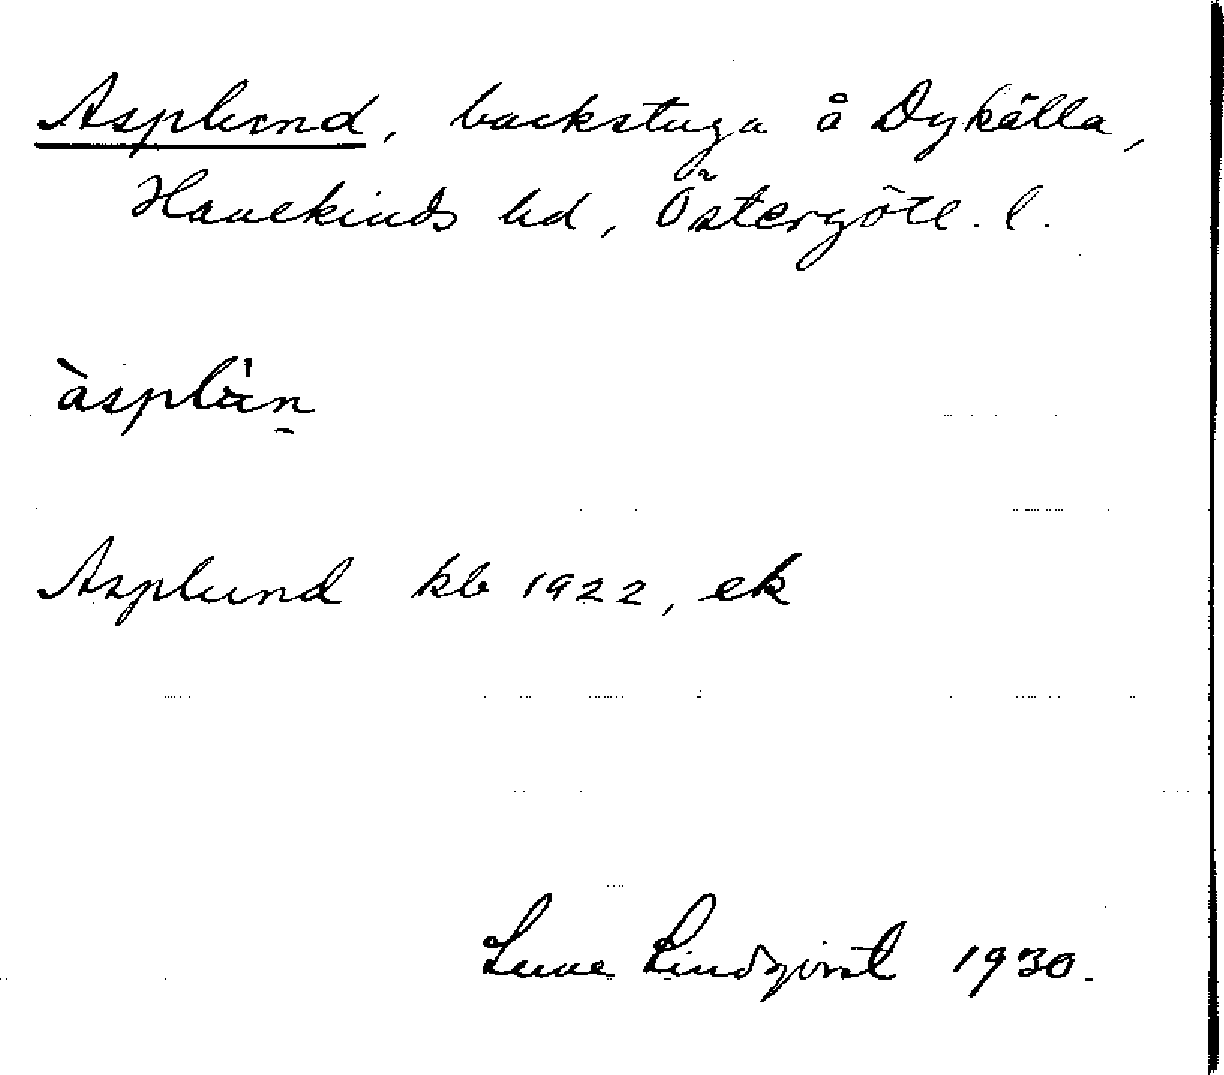 Asplund, backstuga å Dykälla,
Hanekinds hd, Östergötl. l.
àsplún
Asplund kb 1922, ek
Sune Lindqvist 1930.